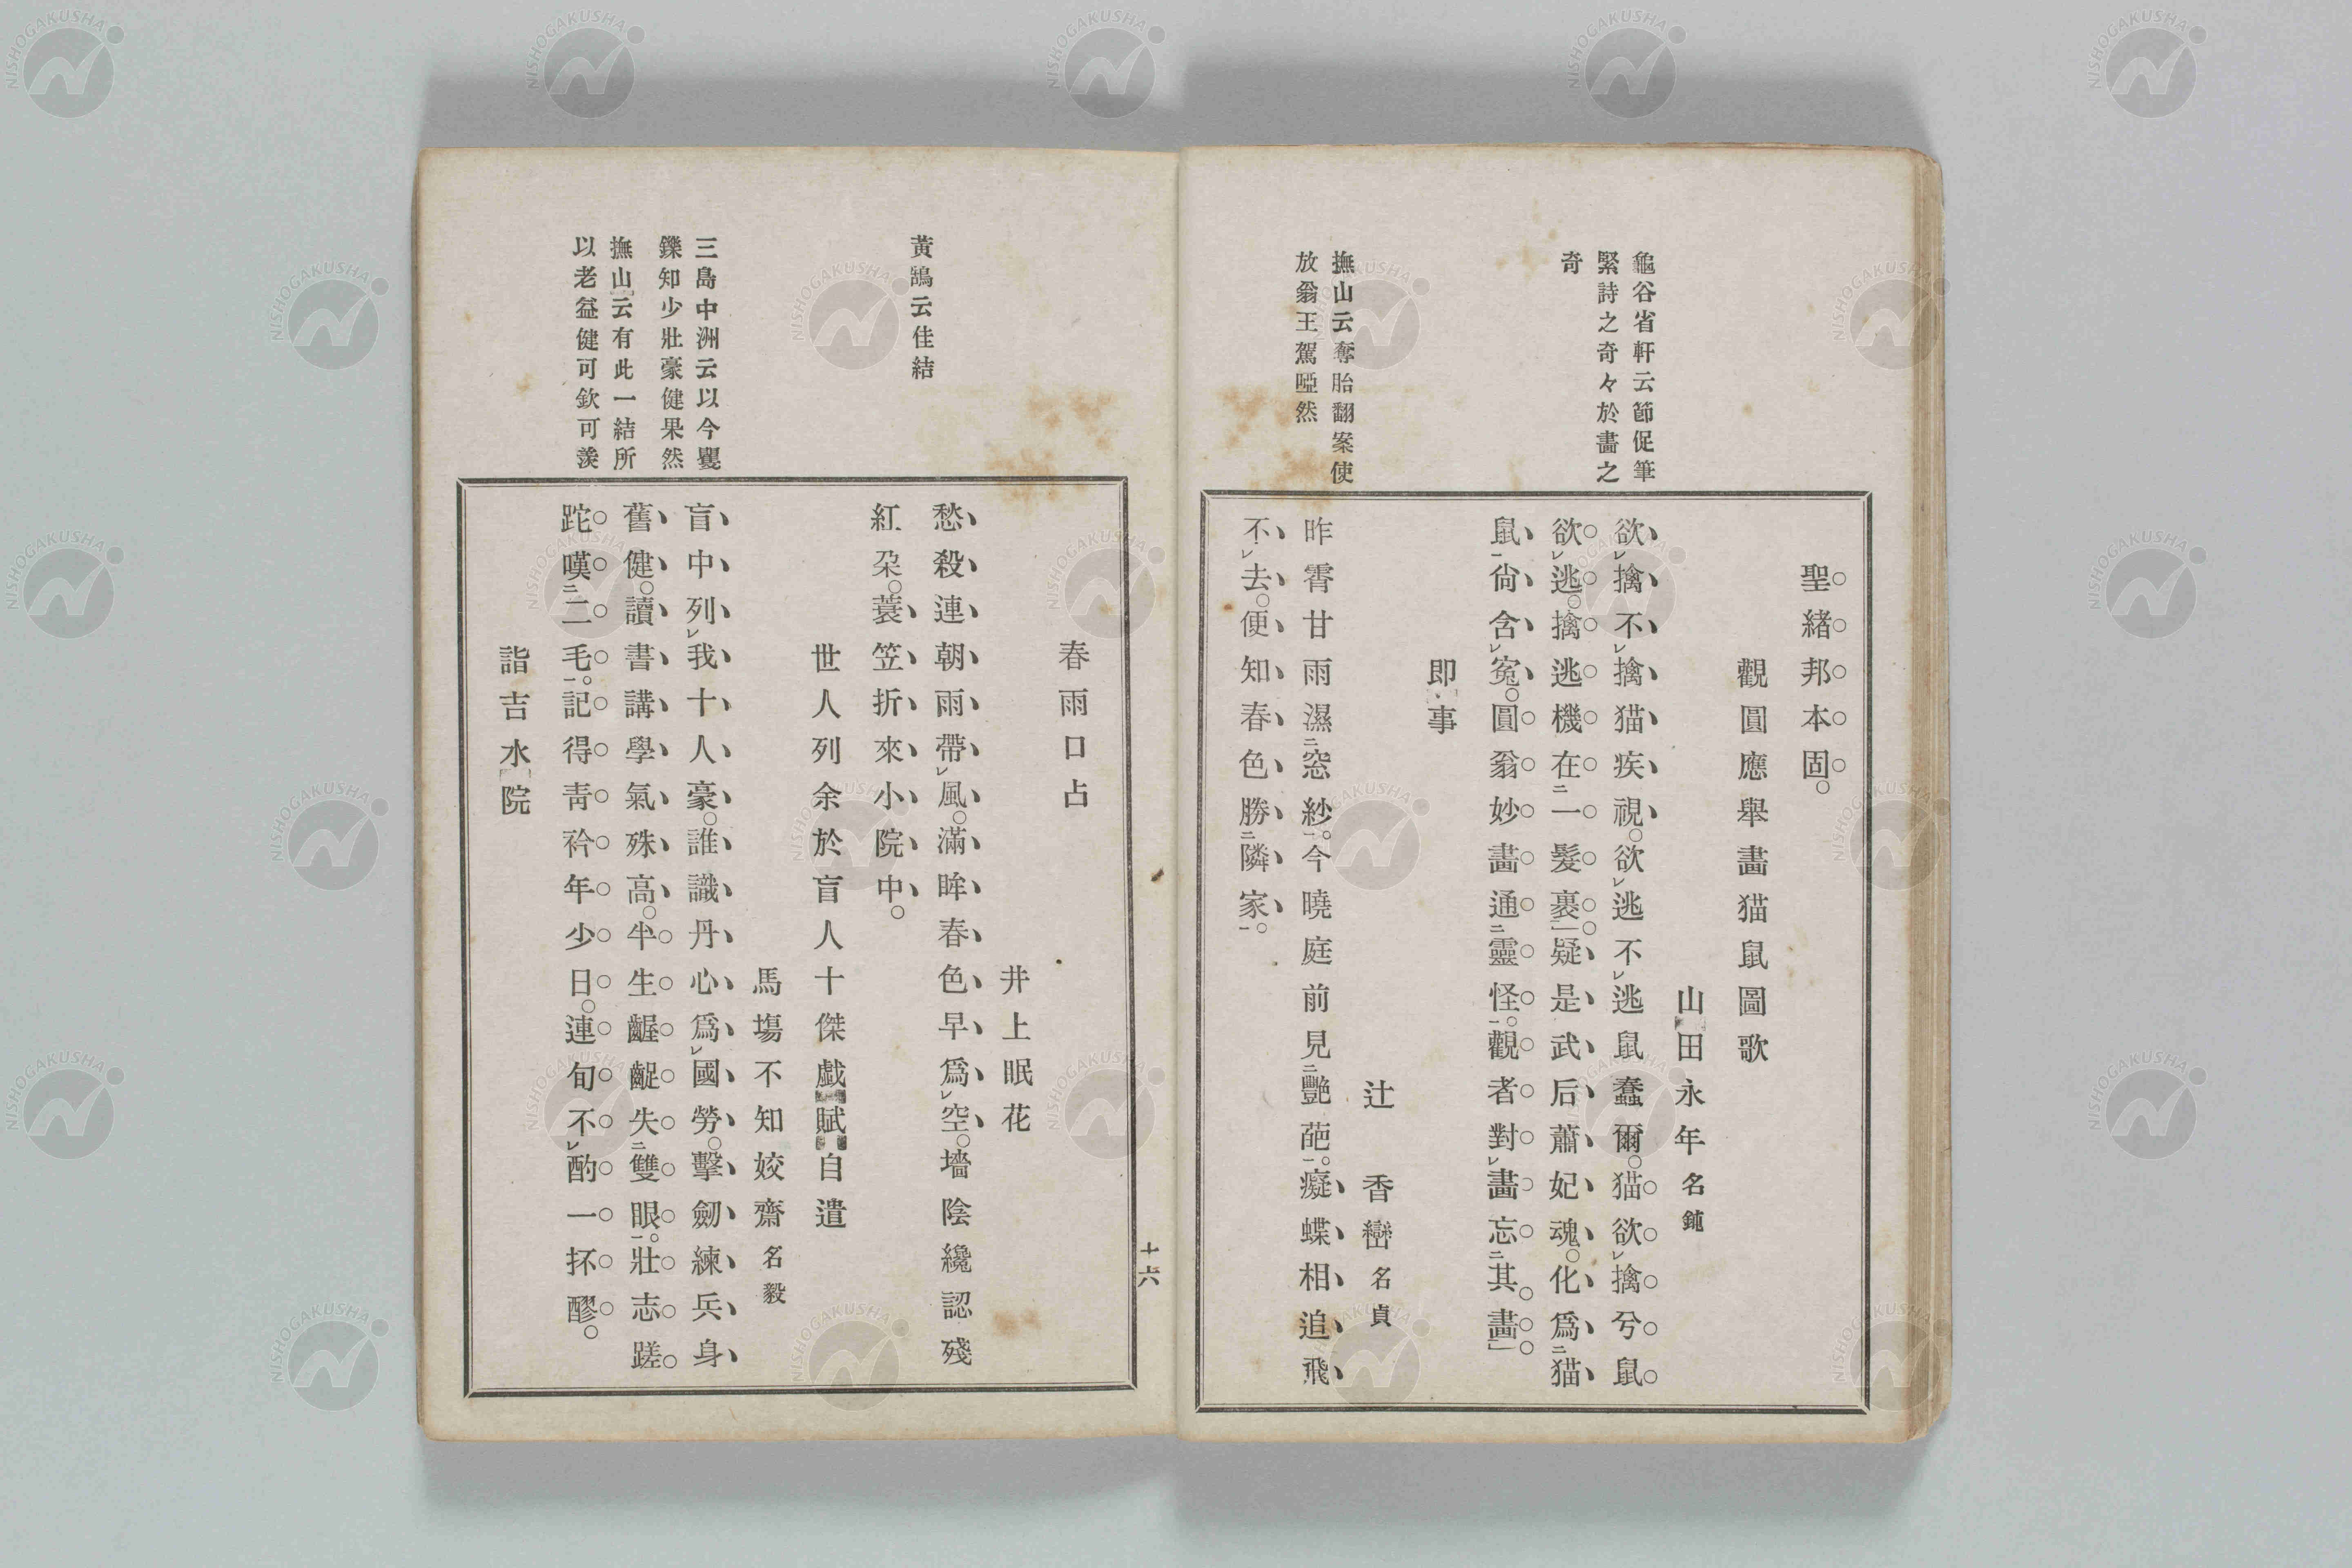 龜谷省軒云節促筆
緊詩之奇々於畵之
奇
撫山云奪胎翻案使
放翁王駕啞然
聖緒邦本固。
觀圓應舉畵猫鼠圖歌
山田永年名鈍
欲レ擒不レ擒猫疾視。欲レ逃不レ逃鼠蠢爾。猫欲レ擒兮鼠
欲レ逃。擒逃機在二一髮裹一。疑是武后蕭妃魂。化爲二猫
鼠一尙含レ寃。圓翁妙畵通二靈怪一。觀者對レ畵忘二其畵一。
即事
辻香巒名貞
昨霄甘雨濕二窓紗一。今曉庭前見二艷葩一。癡蝶相追飛
不レ去。便知春色勝二隣家一。
黃鵠云佳結
三島中洲云以今矍
鑠知少壯豪健果然
撫山云有此一結所
以老益健可欽可羨
春雨口占
井上眠花
愁殺連朝雨帶レ風。滿眸春色早爲レ空。墻陰纔認殘
紅朶。蓑笠折來小院中。
世人列余於盲人十傑戱賦自遣
馬塲不知姣齋名毅
盲中列レ我十人豪。誰識丹心爲レ國勞。擊劒練兵身
舊健。讀書講學氣殊高。半生齷齪失二雙眼一。壯志蹉
跎嘆二二毛一。記得靑衿年少日。連旬不レ酌一抔醪。
詣吉水院
十六
NISHOGAKUSHA